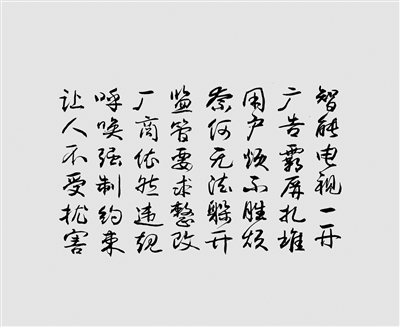 智能电视一开
广告霸屏扎堆
用户烦不胜烦
奈何无法躲开
监管要求整改
厂商依然违规
呼唤强制约束
让人不受扰害